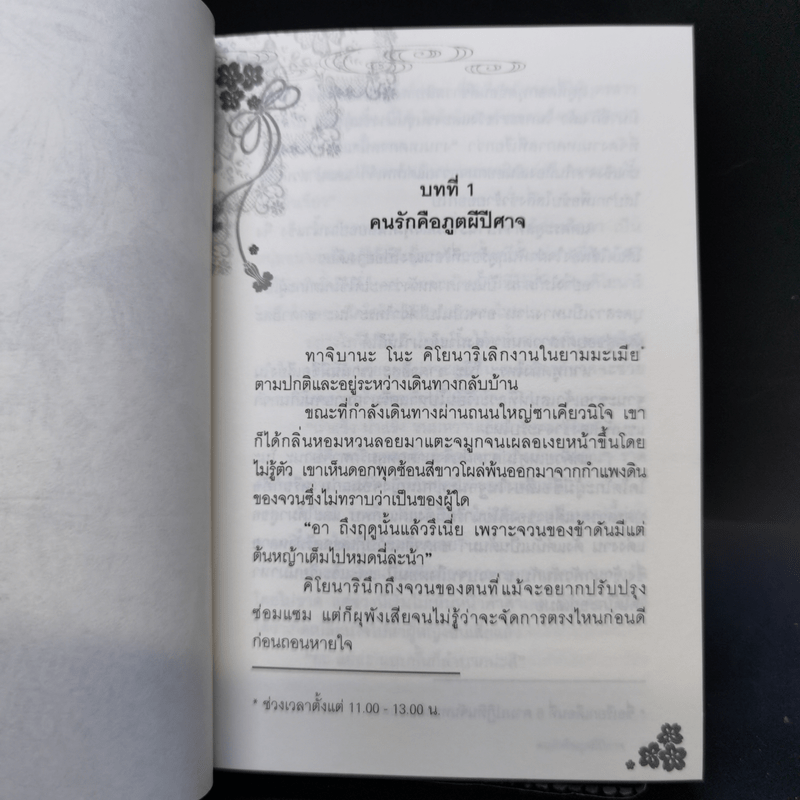 บทที่ 1
คนรักคือภูตผีปีศาจ
ทาจิบานะ โนะ คิโยนาริเลิกงานในยามมะเมีย*
ตามปกติและอยู่ระหว่างเดินทางกลับบ้าน
ขณะที่กำลังเดินทางผ่านถนนใหญ่ซาเคียวนิโจ เขา
ก็ได้กลิ่นหอมหวนลอยมาแตะจมูกจนเผลอเงยหน้าขึ้นโดย
ไม่รู้ตัว เขาเห็นดอกพุดซ้อนสีขาวโผล่พ้นออกมาจากกำแพงดิน
ของจวนซึ่งไม่ทราบว่าเป็นของผู้ใด
“อา ถึงฤดูนั้นแล้วรึเนี่ย เพราะจวนของข้าดันมีแต่
ต้นหญ้าเต็มไปหมดนี่ล่ะน้า”
คิโยนารินึกถึงจวนของตนที่แม้จะอยากปรับปรุง
ซ่อมแซม แต่ก็ผุพังเสียจนไม่รู้ว่าจะจัดการตรงไหนก่อนดี
ก่อนถอนหายใจ
* ช่วงเวลาตั้งแต่ 11.00 - 13.00 น.